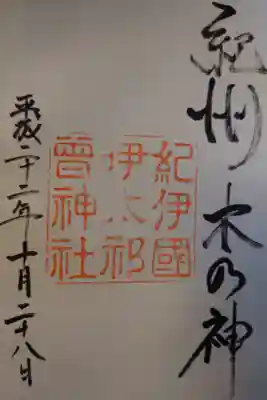 紀州 木の神
紀伊國
伊太祁
曽神社
平成二十二年十月二十八日